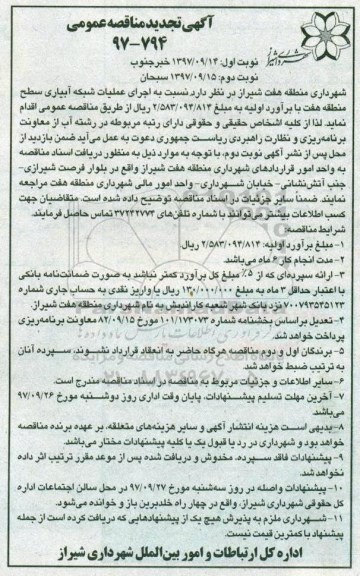 آگهی تجدید مناقصه عمومی
۹۷-۷۹۴
نوبت اول: ۱۳۹۷/۰۹/۱۴ خبرجنوب
نوبت دوم: ۱۳۹۷/۰۹/۱۵ سبحان
شهرداری منطقه هفت شیراز در نظر دارد نسبت به اجرای عملیات شبکه آبیاری سطح
منطقه هفت با برآورد اولیه به مبلغ ۲/۵۸۳/۰۹۴/۸۱۴ ریال از طریق مناقصه عمومی اقدام
نماید. لذا از کلیه اشخاص حقیقی و حقوقی دارای رتبه مربوطه در رشته آب از معاونت
برنامه‌ریزی و نظارت راهبردی ریاست جمهوری دعوت به عمل می‌آید ضمن بازدید از
محل پس از نشر آگهی نوبت دوم، با توجه به موارد ذیل به منظور دریافت اسناد مناقصه
به واحد امور قراردادهای شهرداری منطقه هفت شیراز واقع در بلوار فرصت شیرازی-
جنب آتش‌نشانی- خیابان شهرداری- واحد امور مالی شهرداری منطقه هفت مراجعه
نمایند. ضمناً سایر جزئیات در اسناد مناقصه توضیح داده شده است. متقاضیان جهت
کسب اطلاعات بیشتر می‌توانند با شماره تلفن‌های ۳۷۲۲۲۷۷۳ تماس حاصل فرمایند.
شرایط مناقصه:
۱- مبلغ برآورد اولیه: ۲/۵۸۳/۰۹۴/۸۱۴ ریال
۲- مدت انجام کار ۶ ماه می‌باشد.
۳- ارائه سپرده‌ای که از ۵٪ مبلغ کل برآورد کمتر نباشد به صورت ضمانت‌نامه بانکی
با اعتبار حداقل ۳ ماه به مبلغ ۱۳۰/۰۰۰/۰۰۰ ریال یا واریز نقدی به حساب جاری شماره
۷۰۰۷۹۳۵۳۵۱۲۳ نزد بانک شهر شعبه کارآندیش به نام شهرداری منطقه هفت شیراز.
۴- تعدیل بر اساس بخشنامه شماره ۱۰۱/۱۷۳۰۷۳ مورخ ۸۲/۰۹/۱۵ معاونت برنامه‌ریزی
پرداخت خواهد شد.
۵- برندگان اول و دوم مناقصه هرگاه حاضر به انعقاد قرارداد نشوند، سپرده آنان
به ترتیب ضبط خواهد شد.
۶- سایر اطلاعات و جزئیات مربوط به مناقصه در اسناد مناقصه مندرج است.
۷- آخرین مهلت تسلیم پیشنهادات، پایان وقت اداری روز دوشنبه مورخ ۹۷/۰۹/۲۶
می‌باشد.
۸- بدیهی است هزینه انتشار آگهی و سایر هزینه‌های متعلقه، بر عهده برنده مناقصه
خواهد بود و شهرداری در رد یا قبول یک یا کلیه پیشنهادات مختار می‌باشد.
۹- پیشنهادات فاقد سپرده، مخدوش و دریافت شده پس از موعد مقرر ترتیب اثر داده
نخواهد شد.
۱۰- پیشنهادات واصله در روز سه‌شنبه مورخ ۹۷/۰۹/۲۷ در محل سالن اجتماعات اداره
کل حقوقی شهرداری شیراز، واقع در چهار راه خلدبرین باز و خوانده می‌شود.
۱۱- شهرداری ملزم به پذیرش هیچ یک از پیشنهادهایی که دریافت کرده است از جمله
پیشنهاد با کمترین قیمت نیست.
اداره کل ارتباطات و امور بین‌الملل شهرداری شیراز